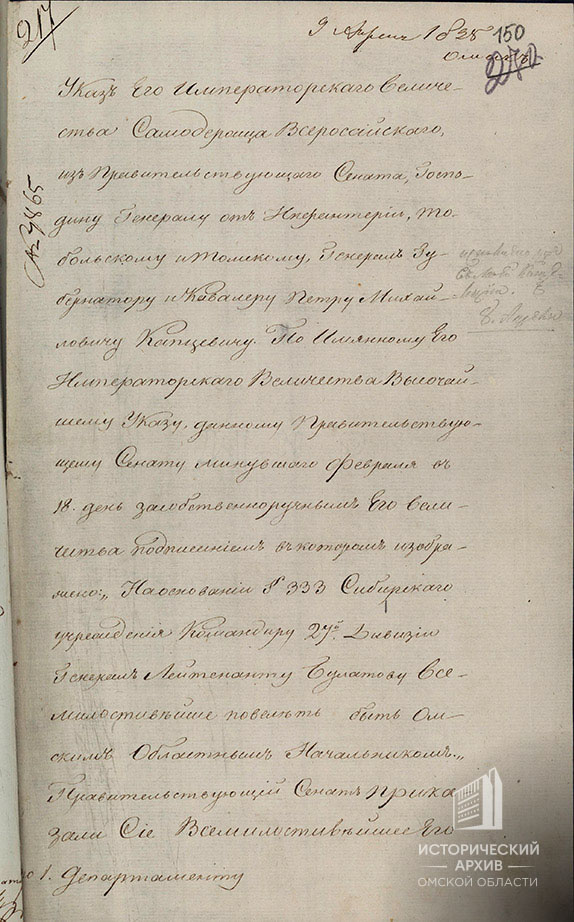 217
9 апреля 1825
150
270
Омскъ
№ 9865
Указъ Его Императорскаго Величе-
ства Самодержца Всероссійскаго,
изъ Правительствующаго Сената, Госпо-
дину Генералу отъ Инфантеріи, То-
больскому и Томскому, Генералъ Гу-
бернатору и Кавалеру Петру Михай-
ловичу Капцевичу. По Имянному Его
Императорскаго Величества Высочай-
шему Указу, данному Правительствую-
щему Сенату минувшаго февраля въ
18. день засобственноручнымъ Его вели-
чества подписаніемъ въ которомъ изобра-
жено: „На основаніи § 333 Сибирскаго
учрежденія Командиру 27й Дивизіи
Генералъ Лейтенанту Булатову Все-
милостивѣйше повелѣть быть Ом-
скимъ Областнымъ Начальникомъ„
Правительствующій Сенатъ прика
зали Сіе Всемилостивѣйшее Его
1. Департаменту
ИСТОРИЧЕСКИЙ
АРХИВ
ОМСКОЙ ОБЛАСТИ